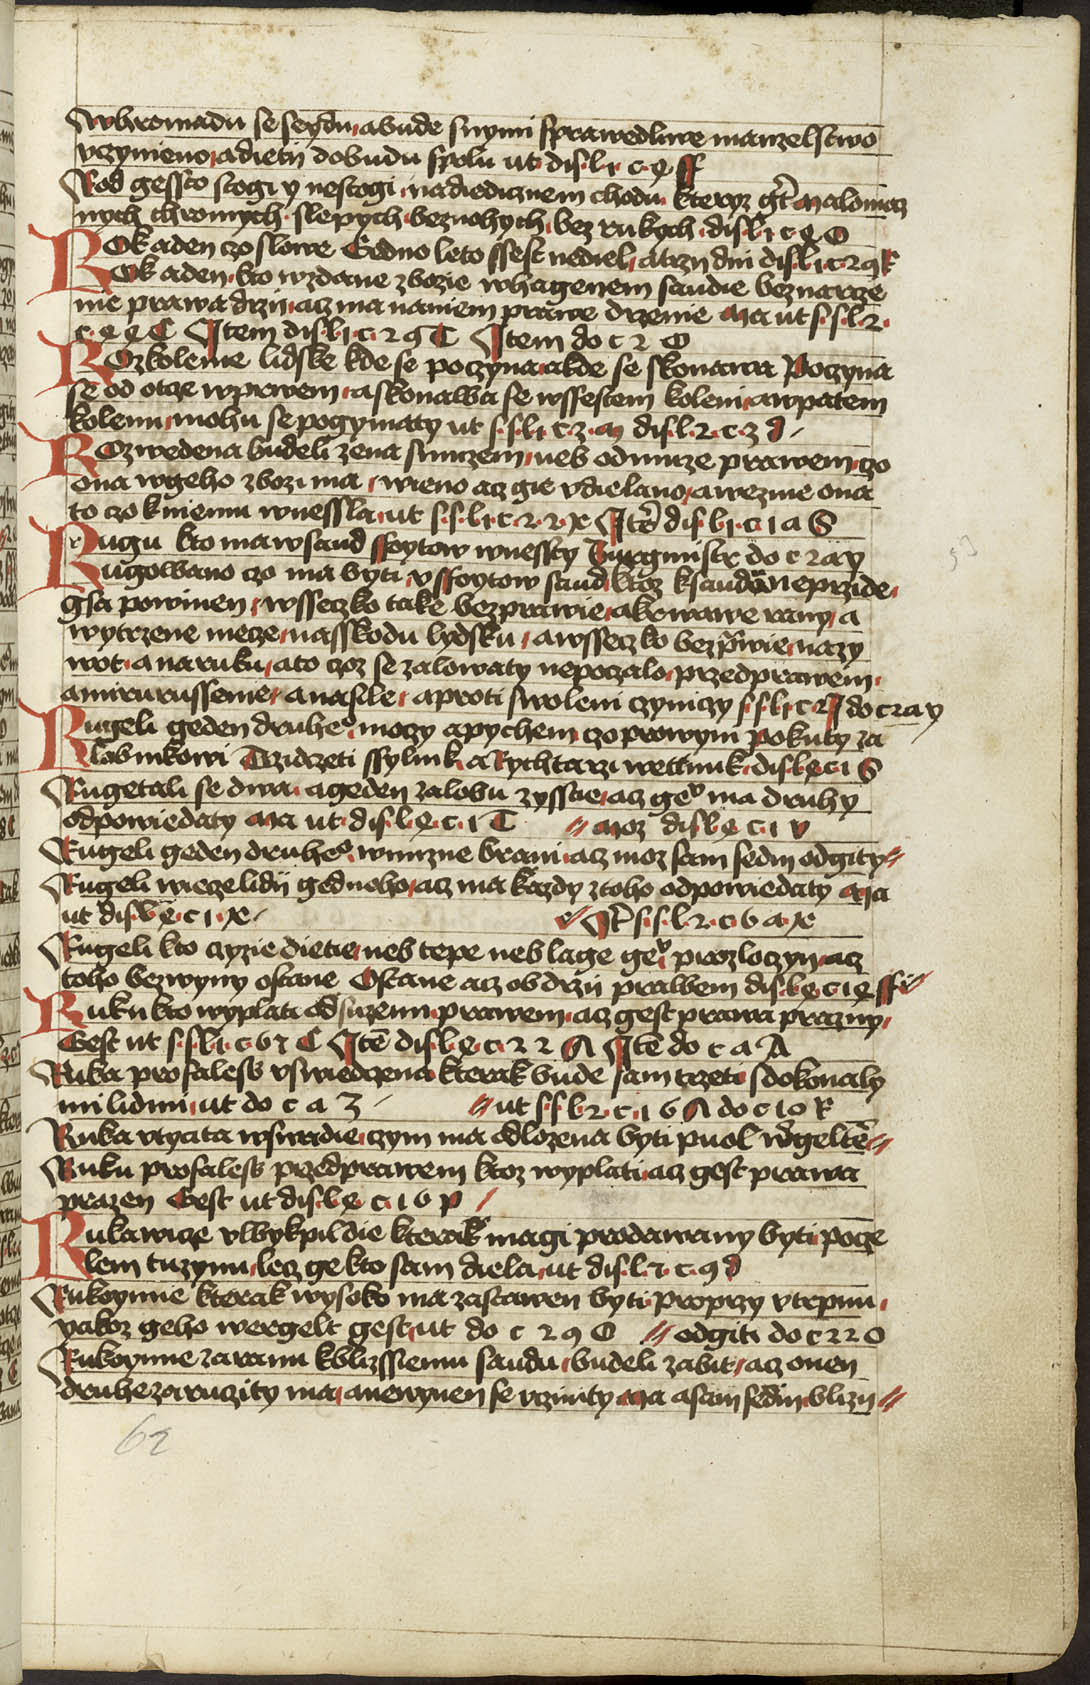 whromadu se segdu a bude snymi sprawedliwe manzelstwo
vczynieno a dietij dobudu spolu ut dis. l. 1 c. e ff
Rod gessto stogi y nestogi na diedicznem chodu kteryz gt malomocz
nych chromych slepych beznohych bez rukych dis l 1 c e O
ROk a den czo slowe Gedno leto ssest nediel a trzy dni dis l 1 c 29 R
Ok a den kto wzdane zbozie whagenem saudie bez narze
nie prawa drzij acz ma naniem prawe drzenie Ma ut s. s. l. 2.
c. e e C Item dis. l 1 c. 29 T Item do c 2 O
ROzkolenie lidske kde se poczyna a kde se skonawa Poczyna
se od otcze wprwem a skonawa se wssestem koleni a wpatem
kolenu mohu se pogymaty ut s. s. l 1. c. 3. m dis. l. 2. c. 3 d
ROzwedena budeli zena smuzem neb odmuze prawem czo
ona wgeho zbozi ma wieno acz gie vdielano a wezme ona
to czo kniemu wnessla ut s. s. l 1. c. 2. 2 x Ite dis. l 1. c. 1 a S
Rugu kto ma wsaud ssoytow wnessty Purgmistr do c 2 a y
Rugowano czo ma byti v ssoytow saud ktoz ksaudu neprzide
gsa powinen wsseczko take bezprawie a krwawe rany a
wytrzene mecze na sskodu lydsku a wsseczko bezprwie na zy
wot a na ruku a to czoz se zalowaty nepoczalo przed prawem
a mirurussenie a nasile a proti swoleni czyniczy s s l 1 c 2 I do c 2 a y
Rugeli geden druheo moczy a pychem czo prowyni Pokuty za
lobnikowi Trzidczeti ssylink a Rychtarzi wettunk dis. l e c 1 S
Rugetali se dwa a geden zalobu zyssce acz geo ma druhy
odpowiedaty Ma ut dis. l. e. c. 1 T // moz dis l e c. 1 v
Rugeli geden druheo wmirzne brani acz moz sam sedm odgity //
Rugeli wieczelidij gednoho acz ma kazdy ztoho odpowiedaty Ma
ut dis. l e. c 1. x It s. s. l. 2. c. 6 a. x
Rugeli kto czyzie dietie neb tepe neb lage geo prozloczyn acz
toho bezwyny ostane Ostane acz obdrzij prawem dis. l e c 1 e ff //
Ruku kto wyplati odsuzenu prawem acz gest prawa prazny
Gest ut s. s. l 1. c 6 7 C Ite dis. l. e. c. 2 2 A Ite do c a A
Ruka profaless vswiedczena kterak bude sam trzeti sdokonaly
mi lidmi ut do c a 3 // ut s. s. l. 2. c. 1 6 A do c 10 R
Ruka vtyata wswadie czym ma odlozena byti puol wergelte //
Ruku profaless przedprawem ktoz wyplati acz gest prawa
prazen Gest ut dis. l. e c. 1 6 p
Rukawicze vlbykpildie kterak magi prodawany byti pocze
lem tuzynu lecz ge kto sam diela ut dis. l. 1. c. 9 d
Rukoymie kterak wysoko ma zastawen byti proprzy vtrpnu
yakoz geho wergelt gest ut do c 2 9 O // odgiti do c 2 2 O
Rukoymie za ranu kblizssiemu saudu budeli zabit acz onen
druhe zaruczity ma a newynen se vczinity Ma a sam sedm blizij //
62